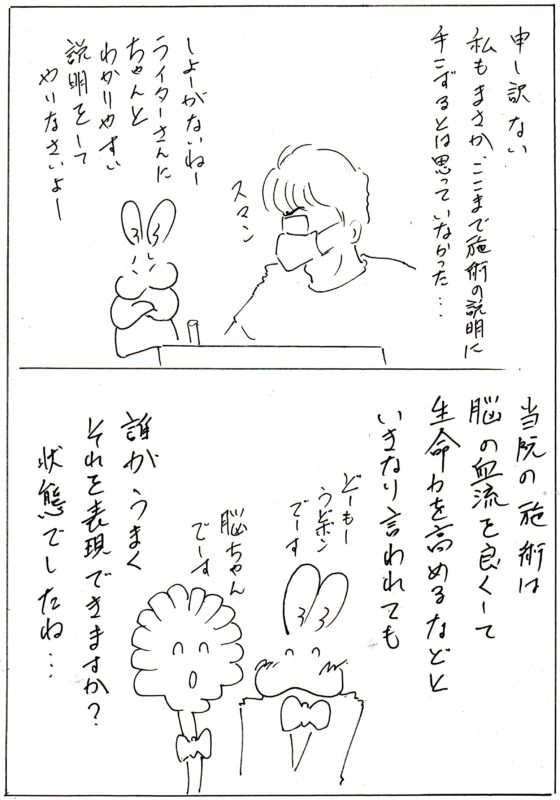 申し訳ない
私もまさか、ここまで施術の説明に
手こずるとは思っていなかった…
スマン
しょーがないねー
ライターさんに
ちゃんと
わかりやすい
説明をして
やりなさいよー
当院の施術は
脳の血流を良くして
生命力を高めるなどと
いきなり言われても
どーもー
うどポン
でーす
脳ちゃん
でーす
誰がうまく
それを表現できますか?
状態でしたね…